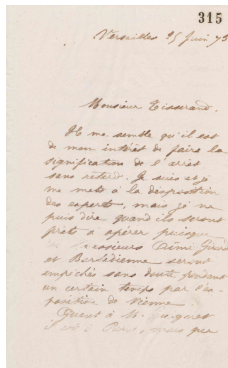 315
Versailles 25 Juin 73
Monsieur Tisserand.
Il me semble qu'il est
de mon intérêt de faire la
signification de l'arrêt
sans retard. Je suis et
me mets à la disposition
des experts, mais je ne
puis dire quand ils seront
prêts à opérer puisque
messieurs Aimé Girard
et Barbédienne seront
empêchés sans doute pendant
un certain temps par l'ex-
position de Vienne.
Quant à M.
il est à Paris, mais par